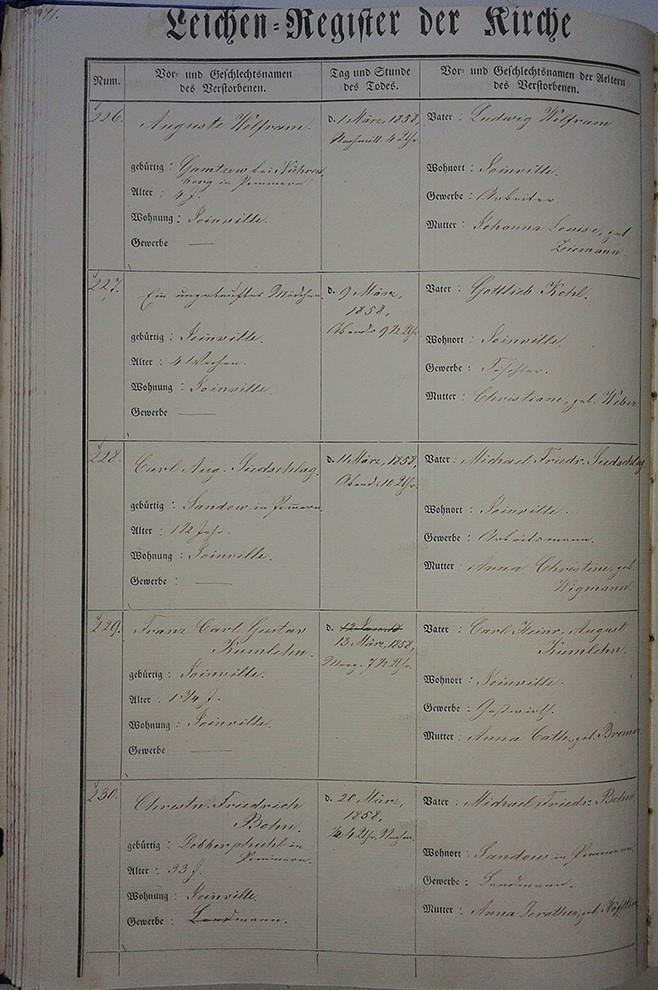 Leichen-Register der Kirche
Num.
Vor- und Geschlechtsnamen
des Verstorbenen.
Tag und Stunde
des Todes.
Vor- und Geschlechtsnamen der Aeltern
des Verstorbenen.
226.
Auguste Wolfram.
gebürtig: Gamtzow bei Nähren
berg in Pommern
Alter: 4 J.
Wohnung: Joinville.
Gewerbe —
d. 1 März, 1858,
Nachmitt. 4 Uhr
Vater: Ludwig Wolfram
Wohnort: Joinville.
Gewerbe: Arbeiter.
Mutter: Johanna Louise, geb
Ziemann.
227.
Ein ungetauftes Mädchen.
gebürtig: Joinville.
Alter: 4 Wochen.
Wohnung: Joinville.
Gewerbe —
d. 9 März,
1858.
Abends 9½ Uhr
Vater: Gottlieb Kohl.
Wohnort: Joinville
Gewerbe: Tischler.
Mutter: Christiane, geb. Weber
228.
Carl Aug. Siedschlag.
gebürtig: Sandow in Pommern
Alter: 1½ Jahr.
Wohnung: Joinville.
Gewerbe: —
d. 11 März, 1858,
Abends 10 Uhr.
Vater: Michael Friedr. Siedschlag
Wohnort: Joinville.
Gewerbe: Arbeitsmann.
Mutter: Anna Christine, geb
Wigmann.
229.
Franz Carl Gustav
Kumlehn.
gebürtig: Joinville.
Alter: 1 3/4 J.
Wohnung: Joinville.
Gewerbe —
d.
13 März, 1858,
Morg. 7½ Uhr.
Vater: Carl Heinr. August
Kumlehn.
Wohnort: Joinville.
Gewerbe: Gastwirth.
Mutter: Anna Cath. geb. Bremer
230.
Christn. Friedrich
Bohn.
gebürtig: Dobberphul in
Pommern.
Alter: 33 J.
Wohnung: Joinville.
Gewerbe: Landmann.
d. 20 März,
1858.
4 Uhr, Nachm.
Vater: Michael Friedr. Bohn
Wohnort: Sandow in Pommern
Gewerbe: Landmann.
Mutter: Anna Dorothea, geb.